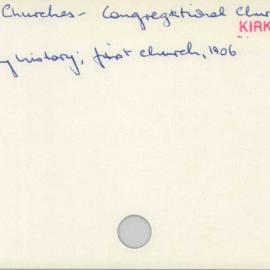 Churches - Congregational Chur
KIRK
y history; first church, 1906